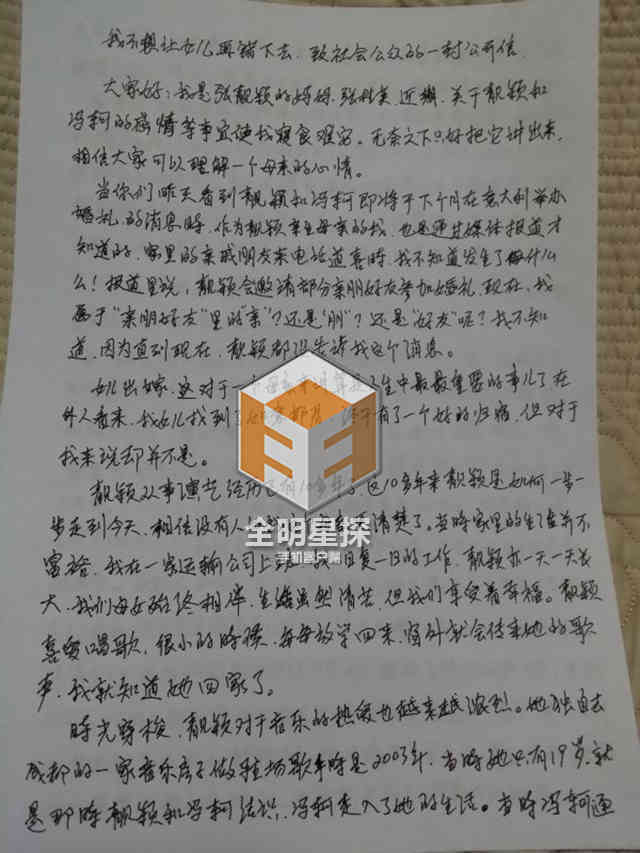 我不想让女儿再错下去，致社会公众的一封公开信
大家好：我是张靓颖的妈妈，张桂英，近期，关于靓颖和
冯轲的婚情等事宜使我寝食难安。无奈之下只好把它讲出来，
相信大家可以理解一个母亲的心情。
当你们昨天看到靓颖和冯轲即将于下个月在意大利举办
婚礼，的消息时，作为靓颖亲生母亲的我，也是通过媒体报道才
知道的，家里的亲戚朋友来电话道喜时，我不知道发生了每什么
么！报道里说，靓颖会邀请部分亲朋好友参加婚礼，现在，我
属于“亲朋好友”里的“亲”？还是“朋”？还是“好友”呢？我不知
道，因为直到现在，靓颖都没告诉我这个消息。
女儿出嫁，这对于一个母亲来讲算是一生中最最重要的事儿了在
外人看来，我女儿找到了 终于有了一个好的归宿，但对于
我来说却并不是。
靓颖从事演艺经历已有10多年，这10多年来靓颖是如何一步一
步走到今天，相信没有人 清楚了。当时家里的生活并不
富裕，我在一家运输公司上班 日复一日的工作，靓颖亦一天一天长
大，我们母女始终相伴，生活虽然清苦，但我们享受着幸福。靓颖
喜爱唱歌，很小的时候，每每放学回来，窗外就会传来她的歌
声，我就知道她回家了。
时光穿梭，靓颖对于音乐的热爱也越来越浓烈。她独自去
成都的一家音乐房子做驻场歌手时是2003年，当时她只有19岁，就
是那时靓颖和冯轲结识，冯轲走入了她的生活。当时冯轲通
全明星探
手机客户端